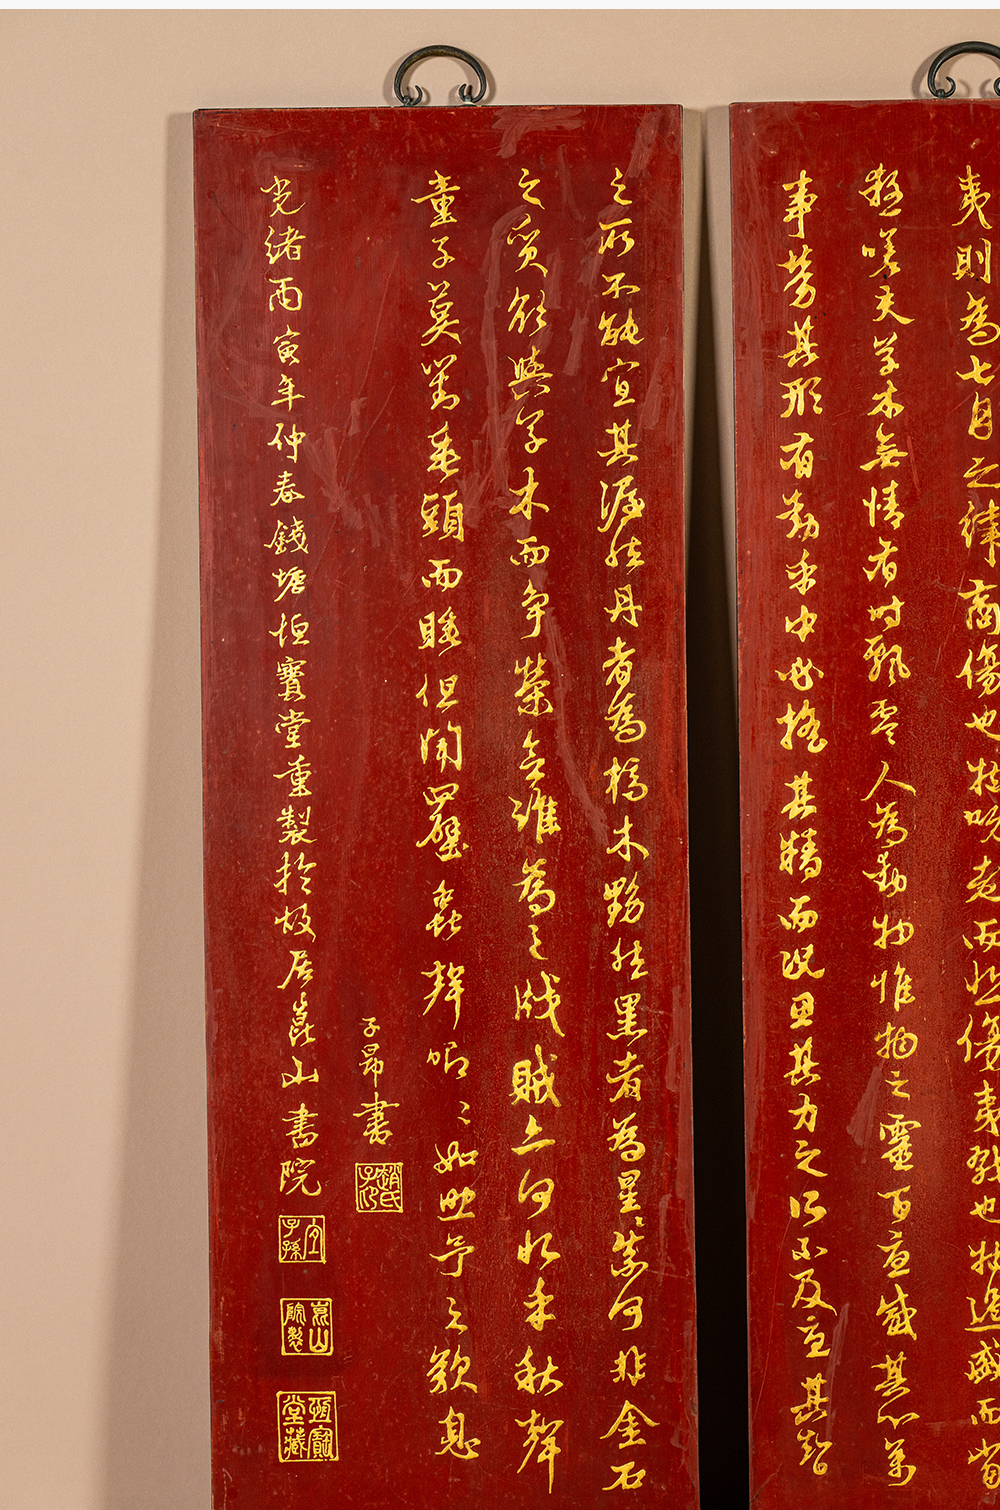 夷則為七月之律商傷也物既老而悲傷夷戮也物過盛而當
殺嗟夫草木無情有時飄零人為動物惟物之靈百憂感其心萬
事勞其形有動乎中必搖其精而況思其力之所不及憂其智
之所不能宜其渥然丹者為槁木黟然黑者為星〻奈何非金石
之質欲與草木而爭榮念誰為之戕賊亦何恨乎秋聲
童子莫對垂頭而睡但聞四壁蟲聲唧〻如助予之歎息
子昂書
趙氏子昂
光緒丙寅年仲春錢塘恒寶堂重製於故居崑山書院
宜子孫
崑山院製
恒寶堂藏